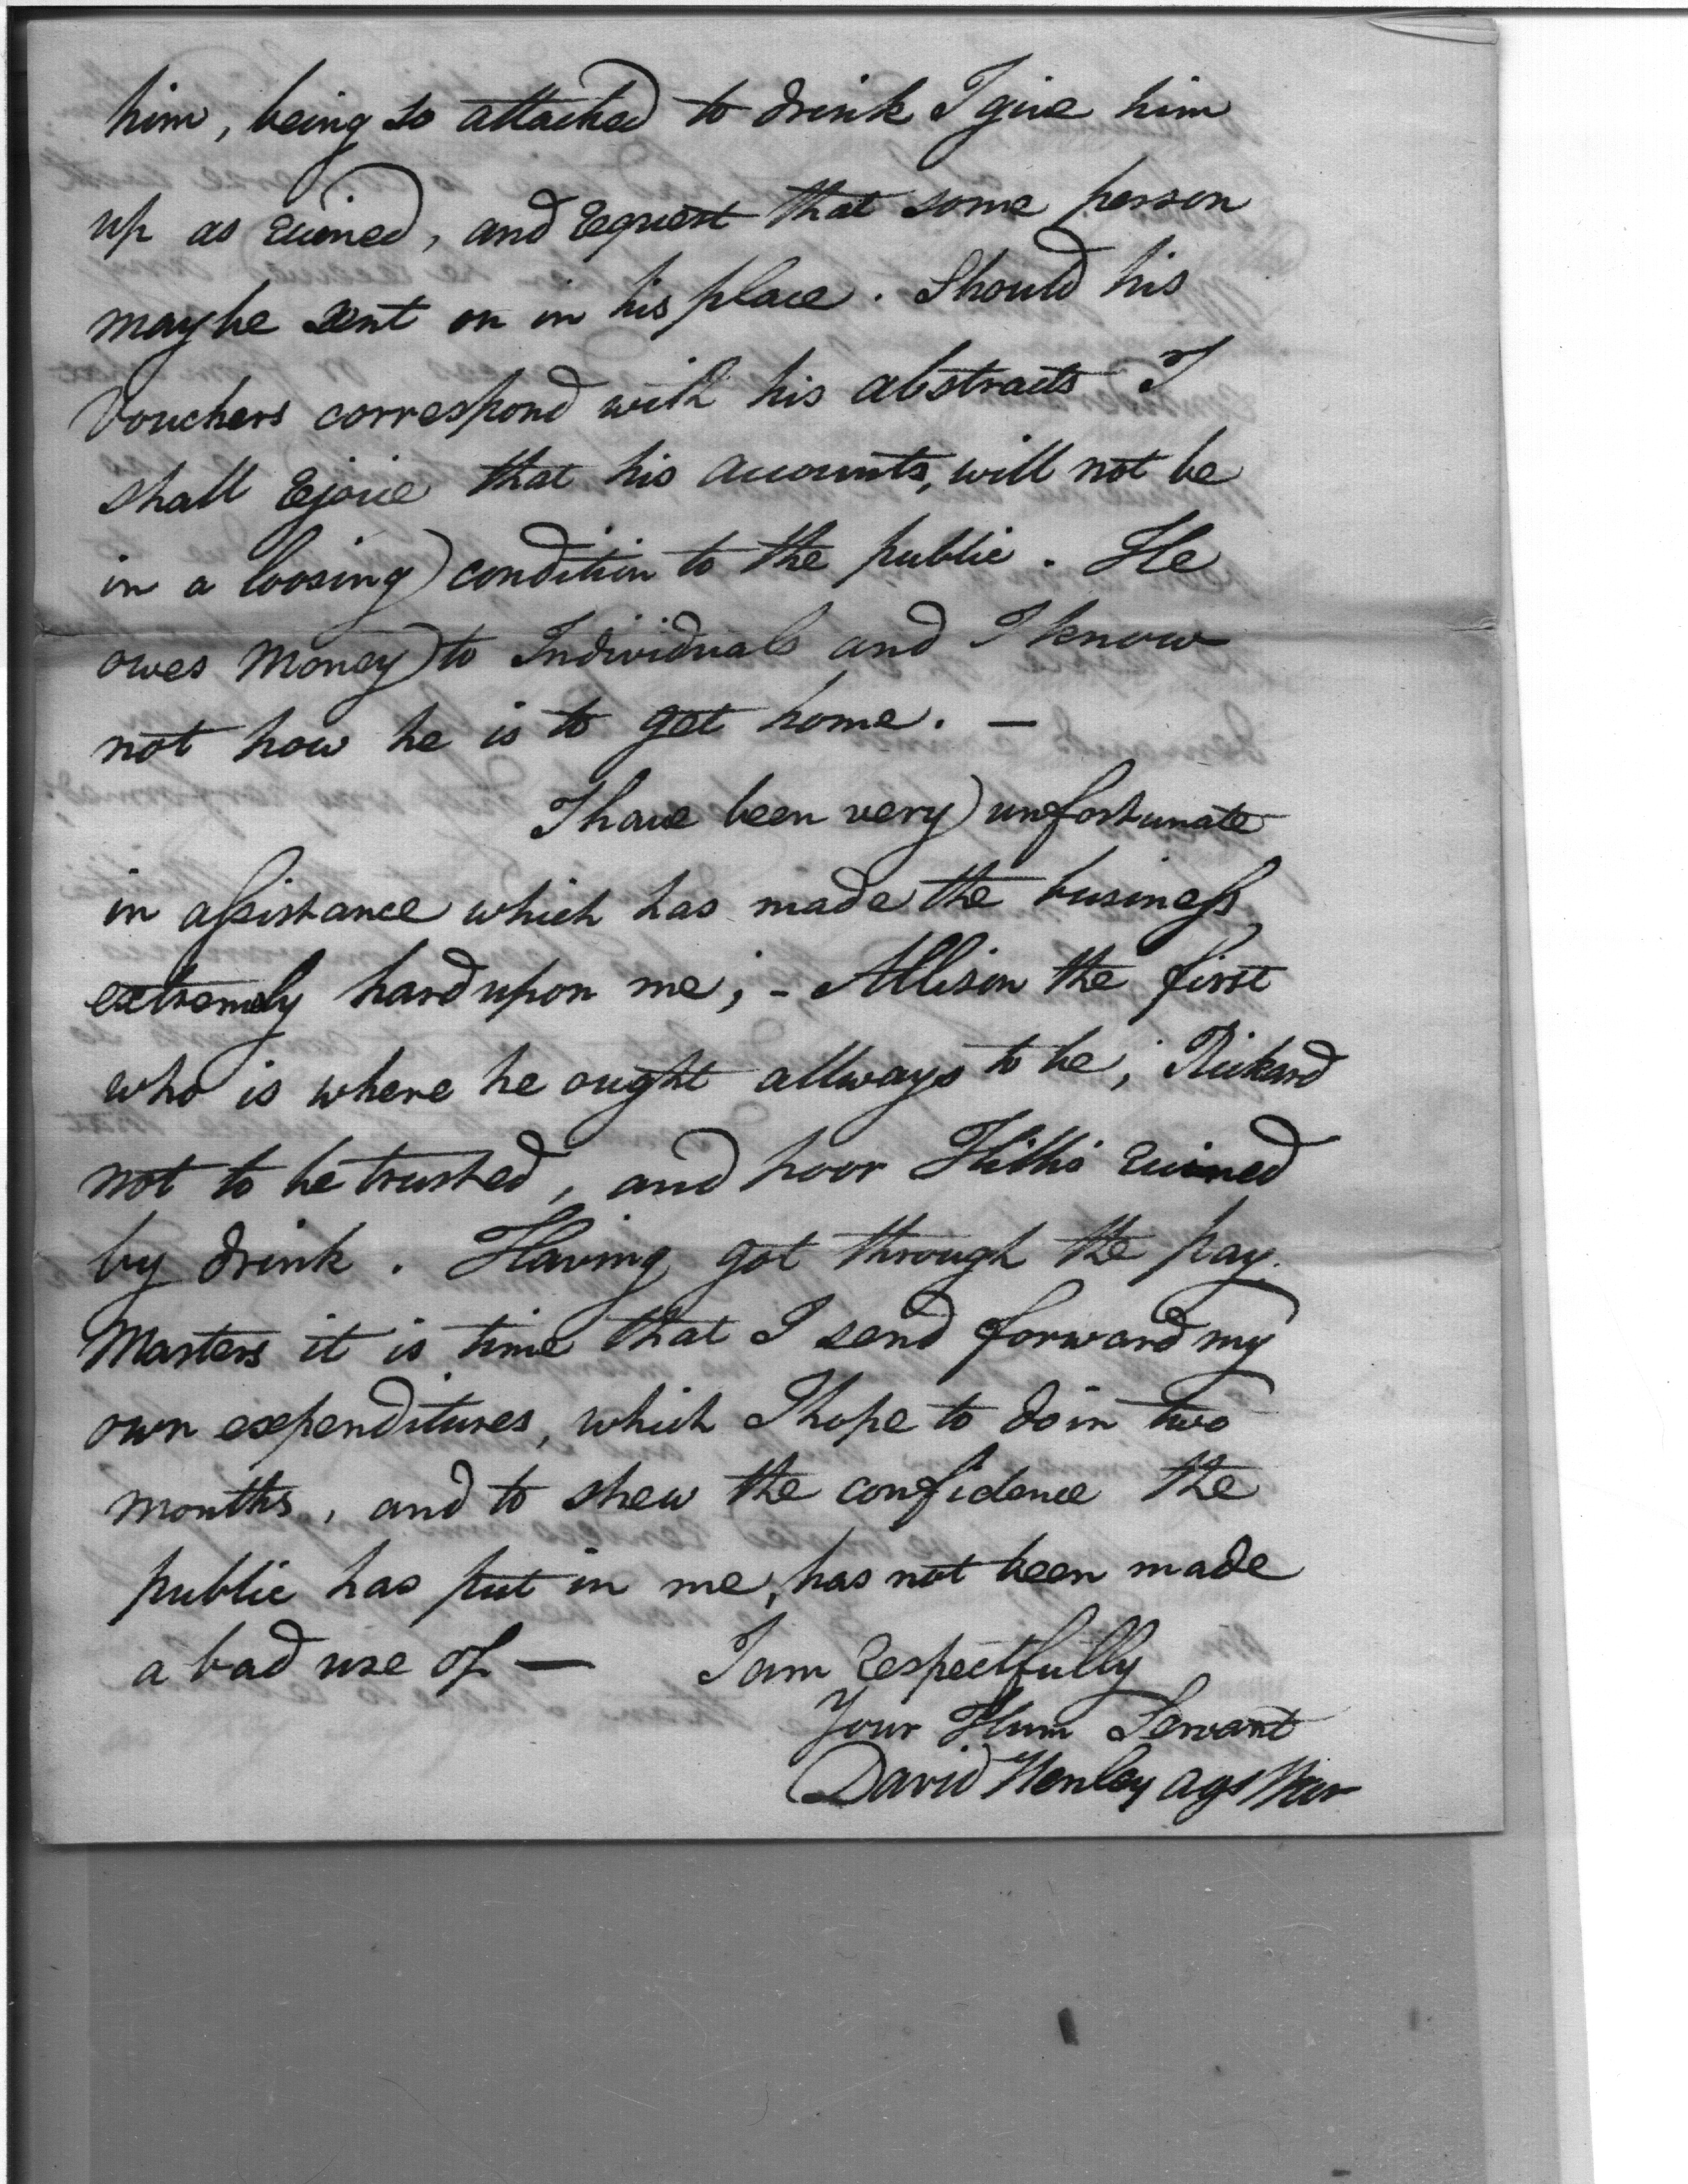 him, being so attached to drink I give him
up as ruined, and request that some person
may be sent on in his place. Should his
Vouchers correspond with his abstracts I
shall rejoice that his accounts, will not be
in a loosing condition to the public. He
owes money to Individuals and I know
not how he is to get home. —
I have been very unfortunate
in assistance which has made the business
extremely hard upon me; - Allison the first
who is where he ought allways to be; Rickard
not to be trusted, and poor Hillis ruined
by drink. Having got through the pay
Masters it is time that I send forward my
own expenditures, which I hope to do in two
months, and to shew the confidence the
public has put in me, has not been made
a bad use of — I am respectfully
Your Hum Servant
David Henley Agt War